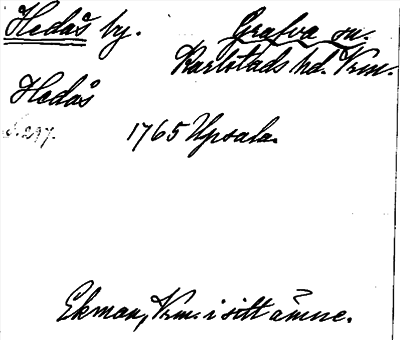 Hedås by. Grafva sn.
Karlstads hd. Vrm.
Hedås
S. 297. 1765 Upsala.
Ekman, Vrm. i sitt ämne.